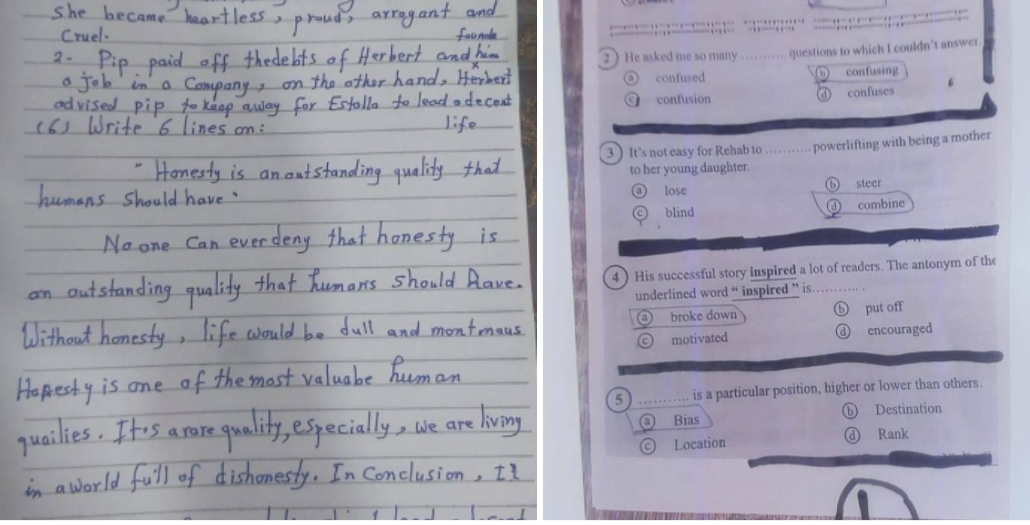 She became heartless, proud, arrogant and
Cruel.
found
2- Pip paid off thedebts of Herbert and him
a job in a Company, on the other hand, Herbert
advised pip to keep away for Estalla to lead a decent
life
(6) Write 6 lines on:
"Honesty is an outstanding quality that
humans Should have"
No one Can ever deny that honesty is
an outstanding quality that humans Should Have.
Without honesty, life would be dull and montmous
Honesty is one of the most valuabe human
quailies. It's a rare quality, especially, we are living
in a world full of dishonesty. In Conclusion, It
2 He asked me so many .......... questions to which I couldn't answer.
a confused
b confusing
c confusion
d confuses
3 It's not easy for Rehab to .......... powerlifting with being a mother
to her young daughter.
a lose
b steer
c blind
d combine
4 His successful story inspired a lot of readers. The antonym of the
underlined word " inspired " is.......... .
a broke down
b put off
c motivated
d encouraged
5 .......... is a particular position, higher or lower than others.
a Bias
b Destination
c Location
d Rank